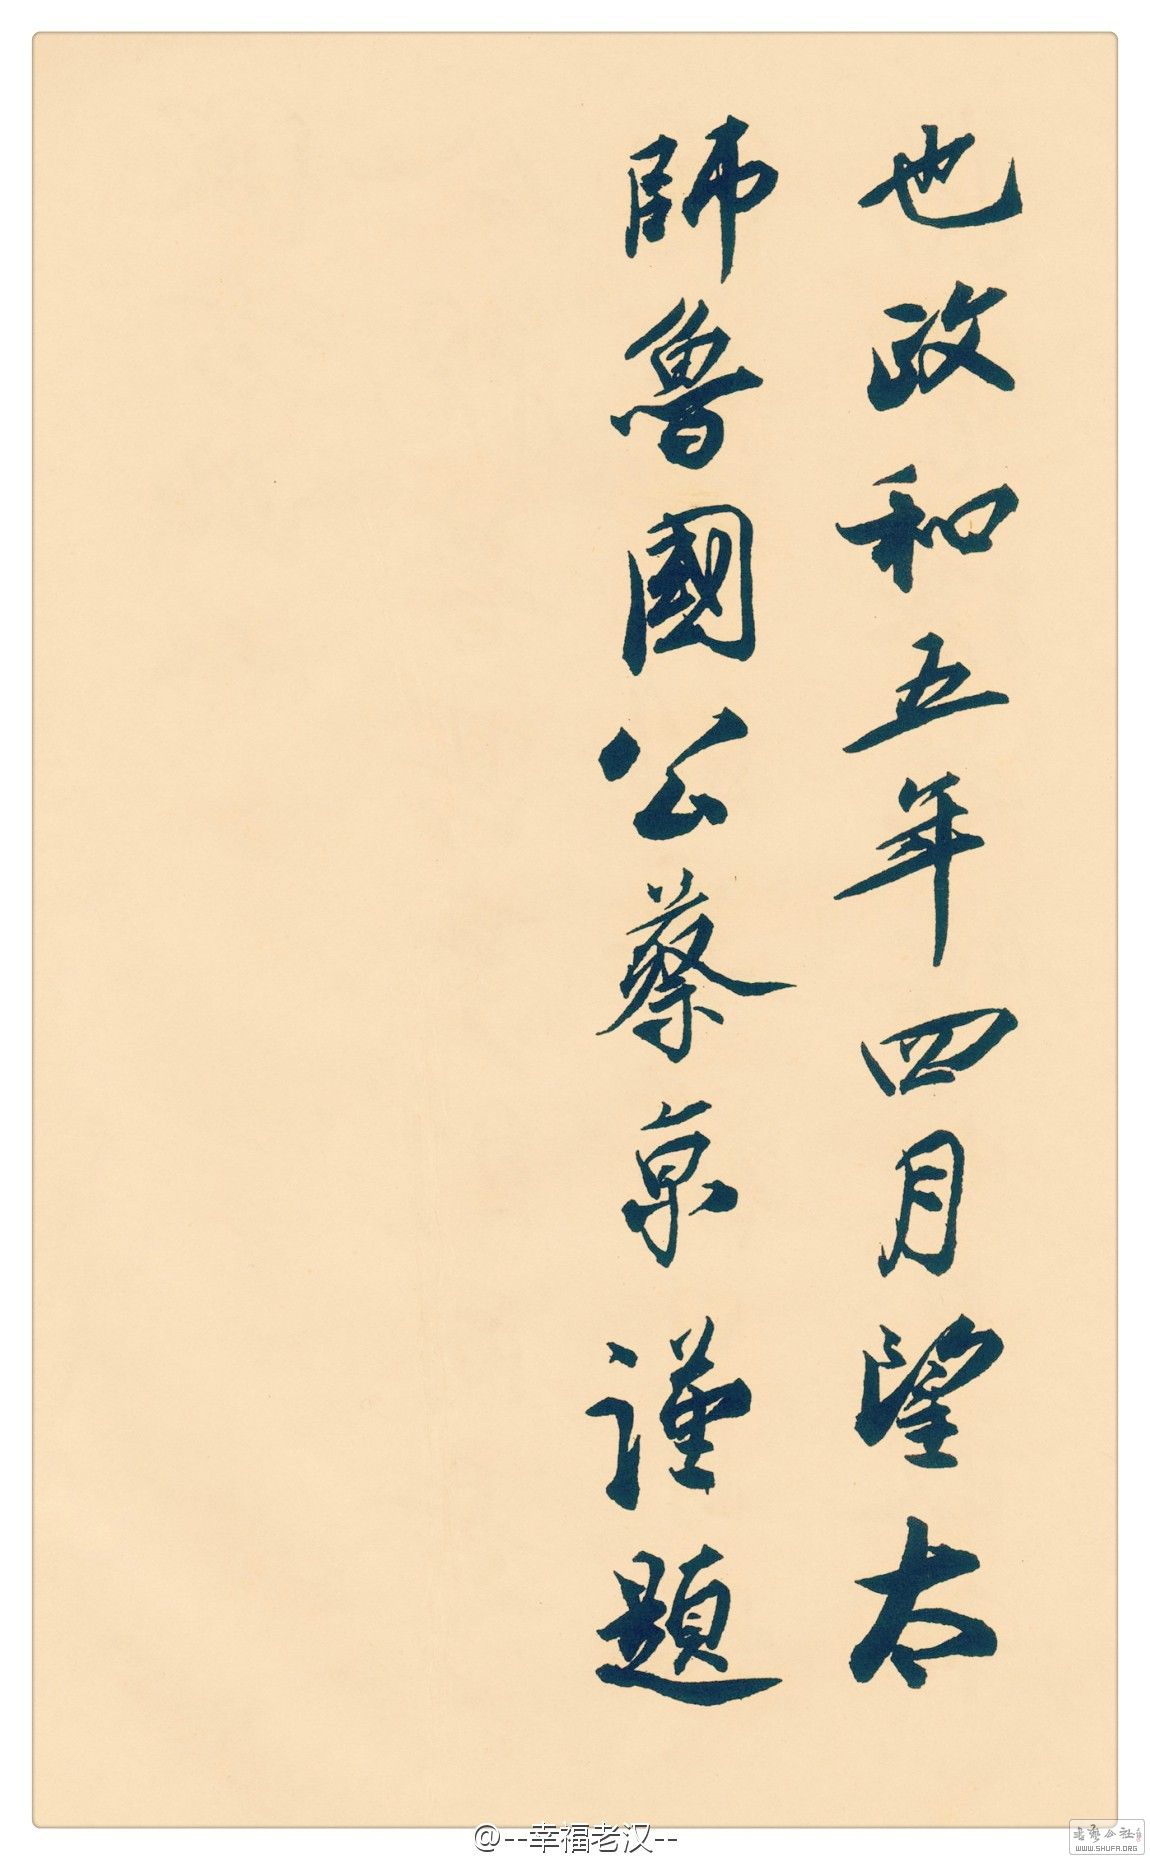 也政和五年四月望太
師魯國公蔡京謹題
@--幸福老汉--
书艺公社
WWW.SHUFA.ORG